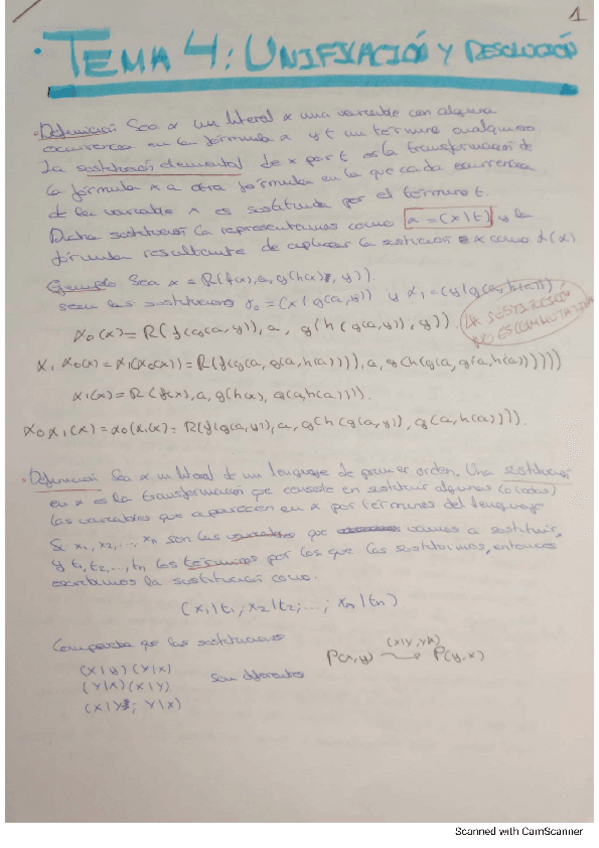 1
· TEMA 4: UNIFICACIÓN Y RESOLUCIÓN
· Definición: Sea α un literal x una variable con alguna
ocurrencia en la fórmula α y t un término cualquiera
La sustitución elemental de x por t es la transformación de
la fórmula α a otra fórmula en la que cada ocurrencia
de la variable x es sustituida por el término t.
Dicha sustitución la representamos como α = (x|t) y la
fórmula resultante de aplicar la α como α(α)
Ejemplo Sea α = R(f(x), a, g(h(x)), y)).
sean las sustituciones = (x | g(a,y)) y α₁ = (y | g(a, h(a)))
LA SUSTITUCIÓN
NO ES CONMUTATIVA
α₀(α) = R(f(g(a,y)), a, g(h(g(a,y)), y))
α₁ α₀(α) = α₁(α₀(α)) = R(f(g(a, g(a,h(a)))), a, g(h(g(a, g(a,h(a)))))
α₁(α) = R(f(x), a, g(h(x), g(a,h(a)))).
α₀ α₁(α) = α₀(α₁(α)) = R(f(g(a,y)), a, g(h(g(a,y)), g(a,h(a)))).
· Definición Sea α un literal de un lenguaje de primer orden. Una sustitución
en α es la transformación que consiste en sustituir algunas (o todas)
las variables que aparecen en α por términos del lenguaje
Si x₁, x₂, ..., xₙ son las variables que vamos a sustituir,
y t₁, t₂, ..., tₙ los términos por los que las sustituimos, entonces
escribimos la sustitución como.
(x₁|t₁; x₂|t₂; ...; xₙ|tₙ)
Comprueba que las sustituciones
(x|y)(y|x)
(y|x)(x|y)
(x|y; y|x)
son diferentes
(x|y, y|x)
P(x,y) → P(y,x)
Scanned with CamScanner